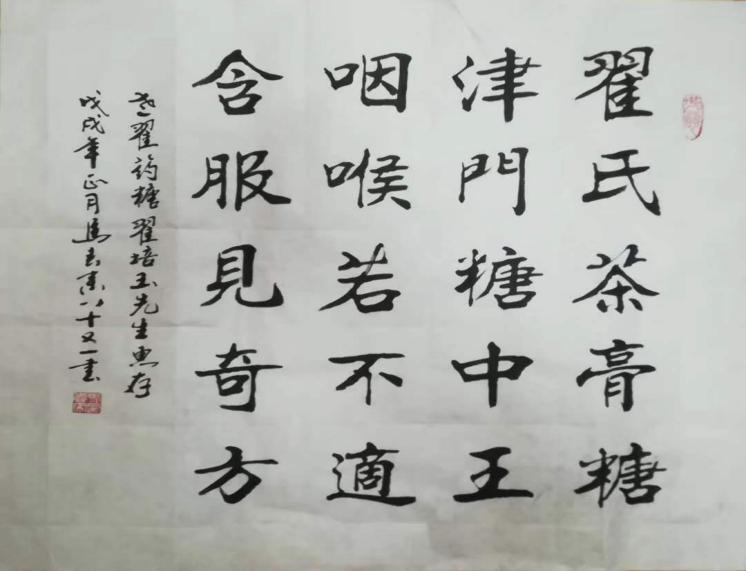 翟氏茶膏糖
津門糖中王
咽喉若不適
含服見奇方
老翟药糖翟培玉先生惠存
戊戌年正月馬八十又一書